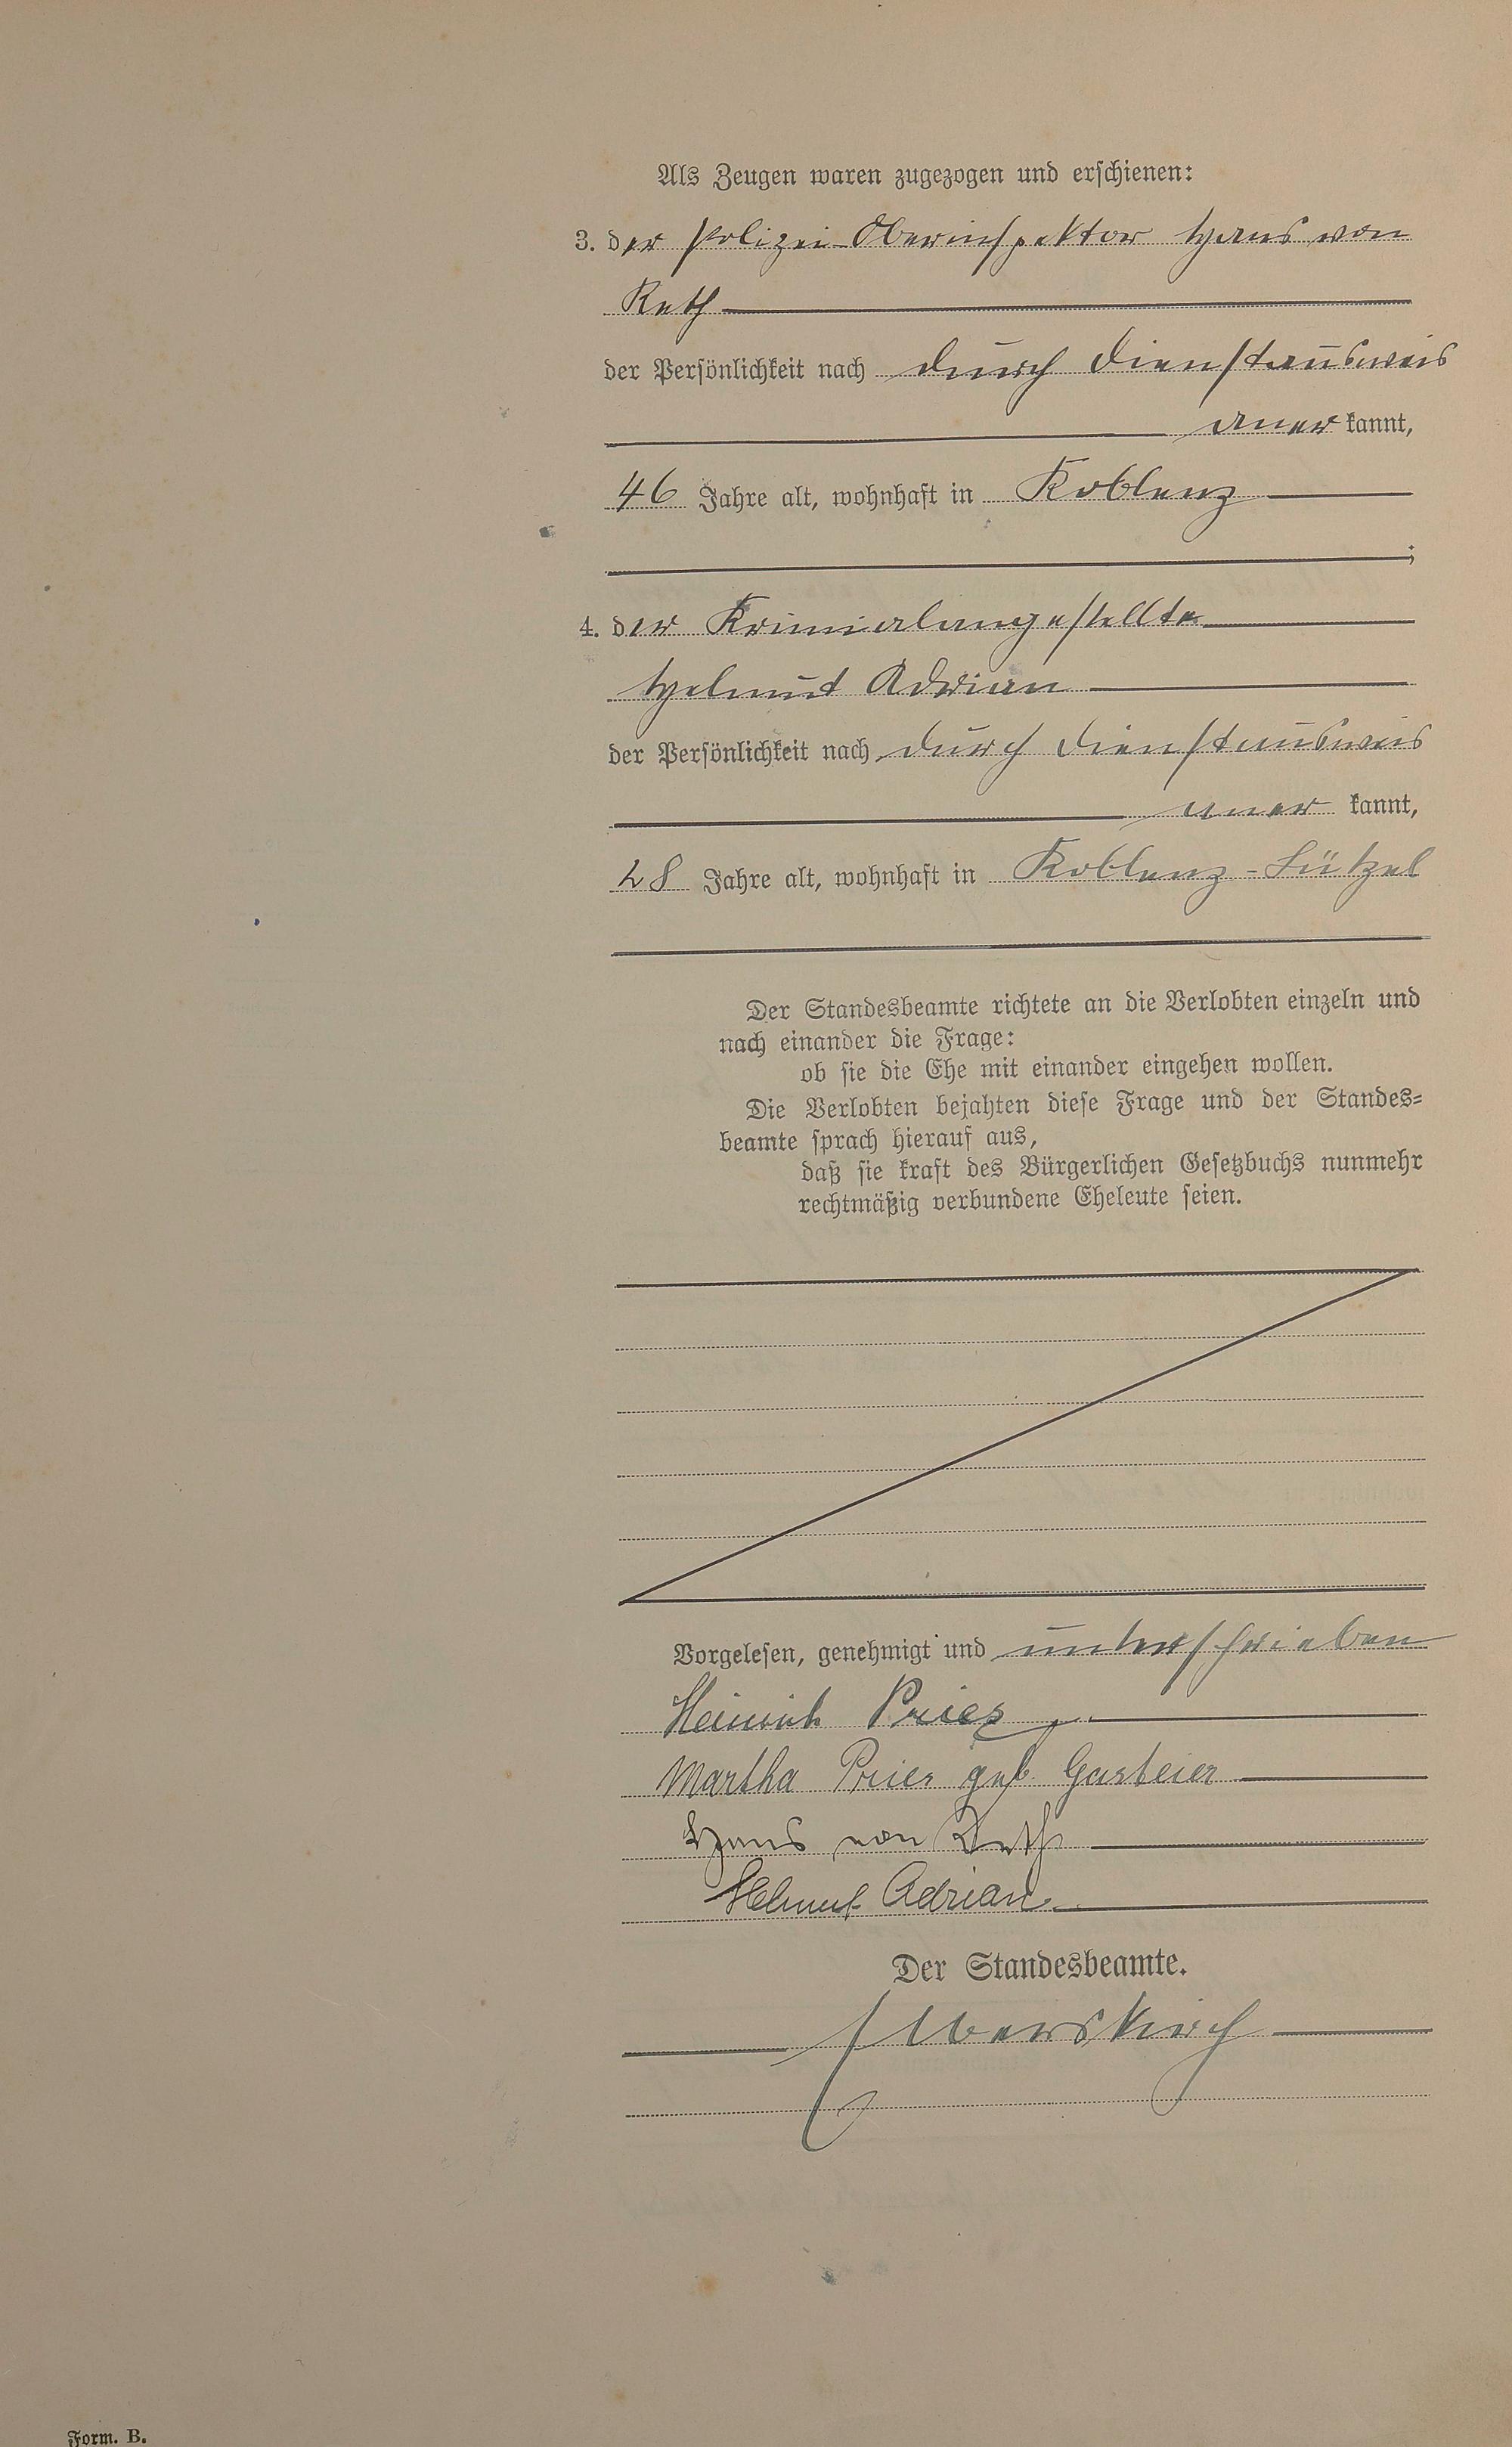 Als Zeugen waren zugezogen und erschienen:
3. der Polizei-Oberinspektor Hans von
Reth
der Persönlichkeit nach durch Dienstausweis
aner kannt,
46 Jahre alt, wohnhaft in Koblenz
;
4. der Krimialangestellte
Helmut Adrian
der Persönlichkeit nach durch Dienstausweis
aner kannt,
28 Jahre alt, wohnhaft in Koblenz-Lützel
Der Standesbeamte richtete an die Verlobten einzeln und
nach einander die Frage:
ob sie die Ehe mit einander eingehen wollen.
Die Verlobten bejahten diese Frage und der Standes=
beamte sprach hierauf aus,
daß sie kraft des Bürgerlichen Gesetzbuchs nunmehr
rechtmäßig verbundene Eheleute seien.
Vorgelesen, genehmigt und unterschrieben
Heinrich Pries
Martha Pries geb. Gasteier
Hans von Reth
Helmut Adrian
Der Standesbeamte.
Form. B.